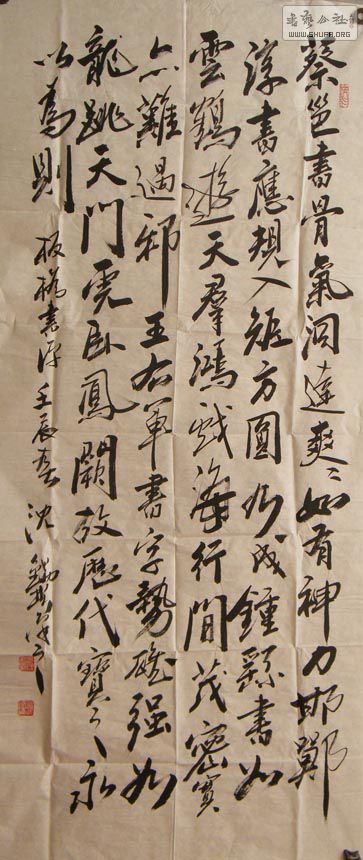 蔡邕書骨氣洞達爽〻如有神力邯鄲
淳書應規入矩方圓乃成鍾繇書如
雲鶴遊天群鴻戲海行間茂密實
亦難過耶王右軍書字勢雄强如
龍跳天門虎臥鳳闕故歷代寶之永
以為則
板橋書評壬辰 沈
書藝公社
WWW.SHUFA.ORG